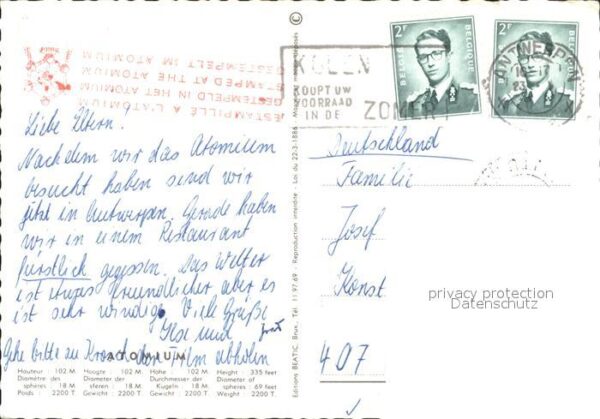 ESTAMPILLE A L'ATOMIUM
GESTEMPELD IN HET ATOMIUM
STAMPED AT THE ATOMIUM
GESTEMPELT IM ATOMIUM
Liebe Eltern!
Nachdem wir das Atomium
besucht haben sind wir
jetzt in Antwerpen. Gerade haben
wir in einem Restaurant
fürstlich gegessen. Das Wetter
ist etwas freundlicher aber es
ist sehr windig. Viele Grüße
Ilse und
Gehe bitte zu den Film abholen
ATOMIUM
Hauteur : 102 M.
Diamètre des
sphères : 18 M.
Poids : 2200 T.
Hoogte : 102 M.
Diameter der
sferen : 18 M.
Gewicht : 2200 T.
Höhe : 102 M.
Durchmesser der
Kugeln : 18 M.
Gewicht : 2200 T.
Height : 335 feet
Diameter of
spheres : 69 feet
Weight : 2200 T.
©
Editions BEATIC, Brux. Tél. 11.97.69 - Reproduction interdite - Loi du 22-3-1886
KOLEN
KOOPT UW
VOORRAAD
IN DE ZOMER
2F
BELGIE BELGIQUE
2F
BELGIE BELGIQUE
ANTWERPEN
Deutschland
Familie
Josef
Könst
407
privacy protection
Datenschutz